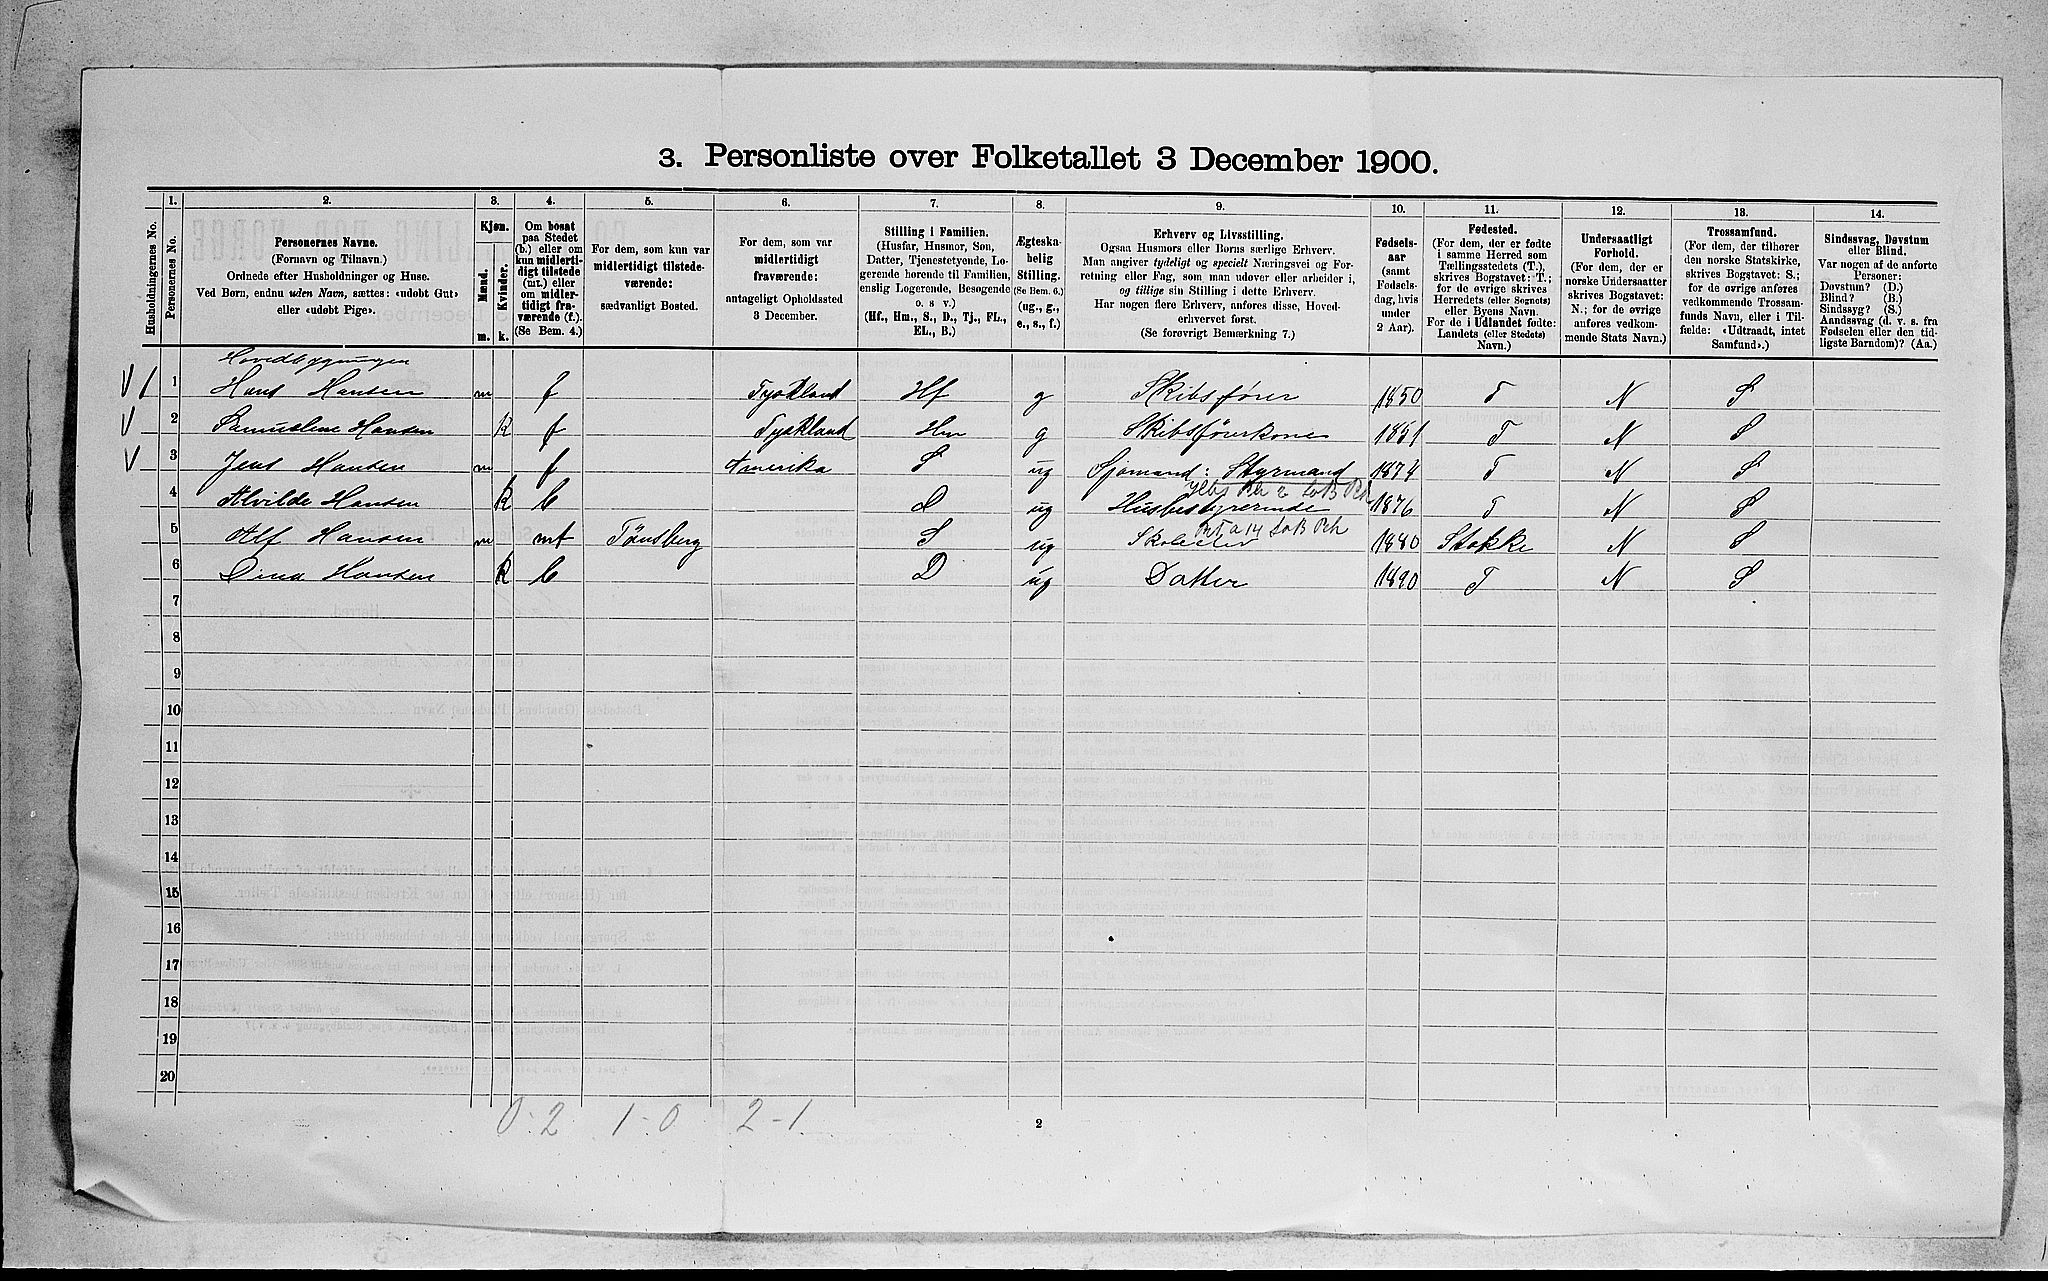 3. Personliste over Folketallet 3 December 1900.
Husholdningernes No.
1.
Personernes No.
2.
Personernes Navne.
(Fornavn og Tilnavn.)
Ordnede efter Husholdninger og Huse.
Ved Børn, endnu uden Navn, sættes: «udøbt Gut»
eller «udøbt Pige».
3.
Kjøn.
Mænd.
Kvinder.
m. k.
4.
Om bosat
paa Stedet
(b.) eller om
kun midlerti-
digt tilstede
(mt.) eller
om midler-
tidigt fra-
værende (f.).
(Se Bem. 4.)
5.
For dem, som kun var
midlertidigt tilstede-
værende:
sædvanligt Bosted.
6.
For dem, som var
midlertidigt
fraværende:
antageligt Opholdssted
3 December.
7.
Stilling i Familien.
(Husfar, Husmor, Søn,
Datter, Tjenestetyende, Lo-
gerende hørende til Familien,
enslig Logerende, Besøgende
o. s v.)
(Hf., Hm., S., D., Tj., FL.,
EL., B.)
8.
Ægteska-
belig
Stilling.
(Se Bem. 6.)
(ug., g.,
e., s., f.)
9.
Erhverv og Livsstilling.
Ogsaa Husmors eller Børns særlige Erhverv.
Man angiver tydeligt og specielt Næringsvei og For-
retning eller Fag, som man udøver eller arbeider i,
og tillige sin Stilling i dette Erhverv.
Har nogen flere Erhverv, anføres disse, Hoved-
erhvervet først.
(Se forøvrigt Bemærkning 7.)
10.
Fødsels-
aar
(samt
Fødsels-
dag, hvis
under
2 Aar).
11.
Fødested.
(For dem, der er fødte
i samme Herred som
Tællingsstedets (T.),
skrives Bogstavet: T.;
for de øvrige skrives
Herredets (eller Sognets)
eller Byens Navn.
For de i Udlandet fødte:
Landets (eller Stedets)
Navn.)
12.
Undersaatligt
Forhold.
(For dem, der er
norske Undersaatter
skrives Bogstavet:
N.; for de øvrige
anføres vedkom-
mende Stats Navn.)
13.
Trossamfund.
(For dem, der tilhører
den norske Statskirke,
skrives Bogstavet: S.;
for de øvrige anføres
vedkommende Trossam-
funds Navn, eller i Til-
fælde: «Udtraadt, intet
Samfund».)
14.
Sindssvag, Døvstum
eller Blind.
Var nogen af de anførte
Personer:
Døvstum? (D.)
Blind? (B.)
Sindssyg? (S.)
Aandssvag (d. v. s. fra
Fødselen eller den tid-
ligste Barndom)? (Aa.)
Hovedbygningen
1 Hans Hansen m f Tyskland Hf g Skibsfører 1850 T N S
2 Samueline Hansen k f Tyskland Hm g Skibsførerkone 1851 T N S
3 Jens Hansen m f Amerika S ug Sjømand: Styrmand 1874 T N S
4 Alvilde Hansen k b D ug Husbestyrerinde 1876 T N S
5 Alf Hansen m mt Tønsberg S ug Skoleelev 1880 Stokke N S
6 Dina Hansen k b D ug Datter 1890 T N S
7
8
9
10
11
12
13
14
15
16
17
18
19
20
0-2 1-0 2-1
2